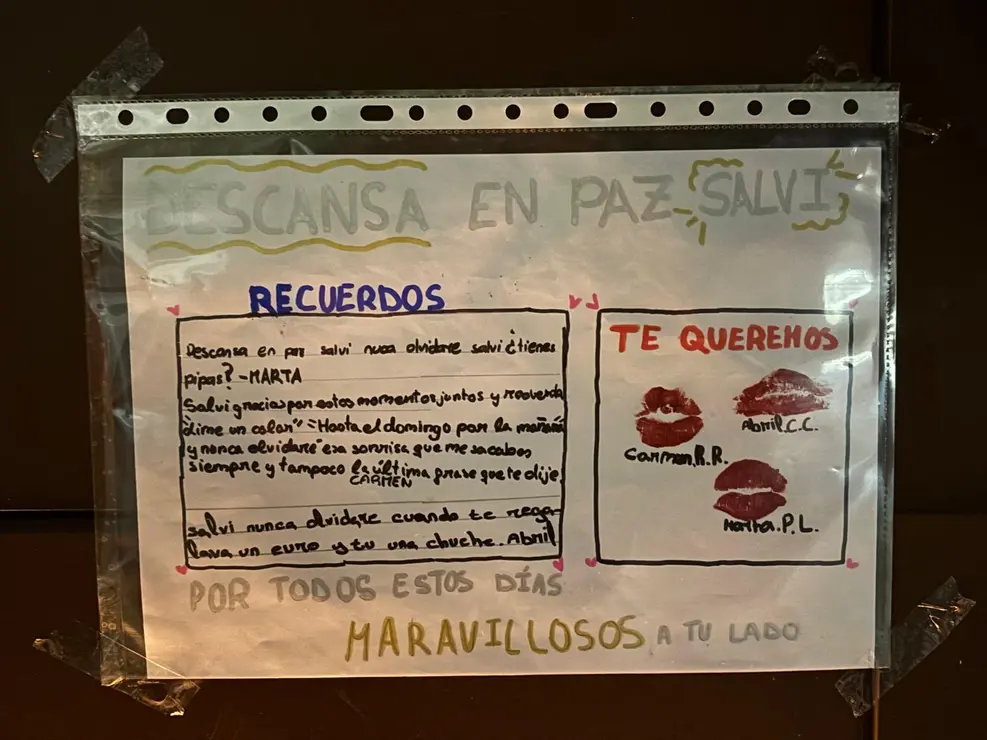 DESCANSA EN PAZ SALVI
RECUERDOS
Descansa en paz salvi nuca olvidare salvi ¿tienes
pipas? -MARTA
Salvi gracias por estos momentos juntos y recuerda
dime un color" = Hasta el domingo por la mañana
y nunca olvidare esa sonrisa que me sacabas
siempre y tampoco la última frase que te dije
CARMEN
salvi nunca olvidare cuando te rega-
lava un euro y tu una chuche. Abril
TE QUEREMOS
Abril.C.C.
Carmen.R.R.
Marta.P.L.
POR TODOS ESTOS DÍAS
MARAVILLOSOS A TU LADO